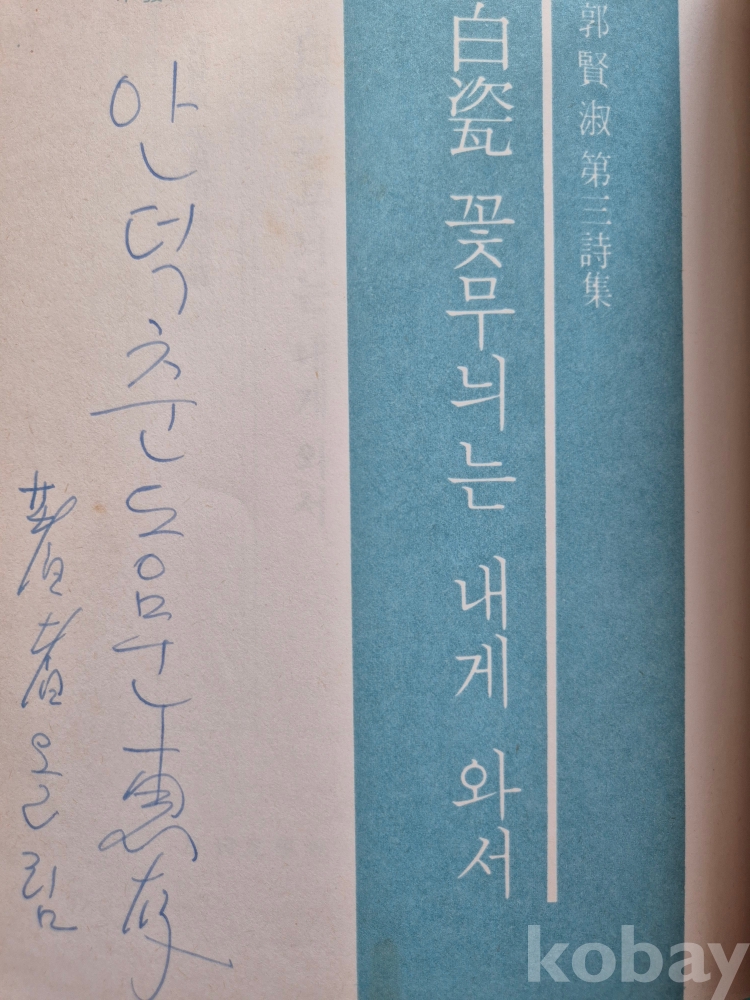 郭賢淑 第三詩集
白瓷 꽃무늬는 내게 와서
안덕춘 동문 惠存
著者 올림
kobay